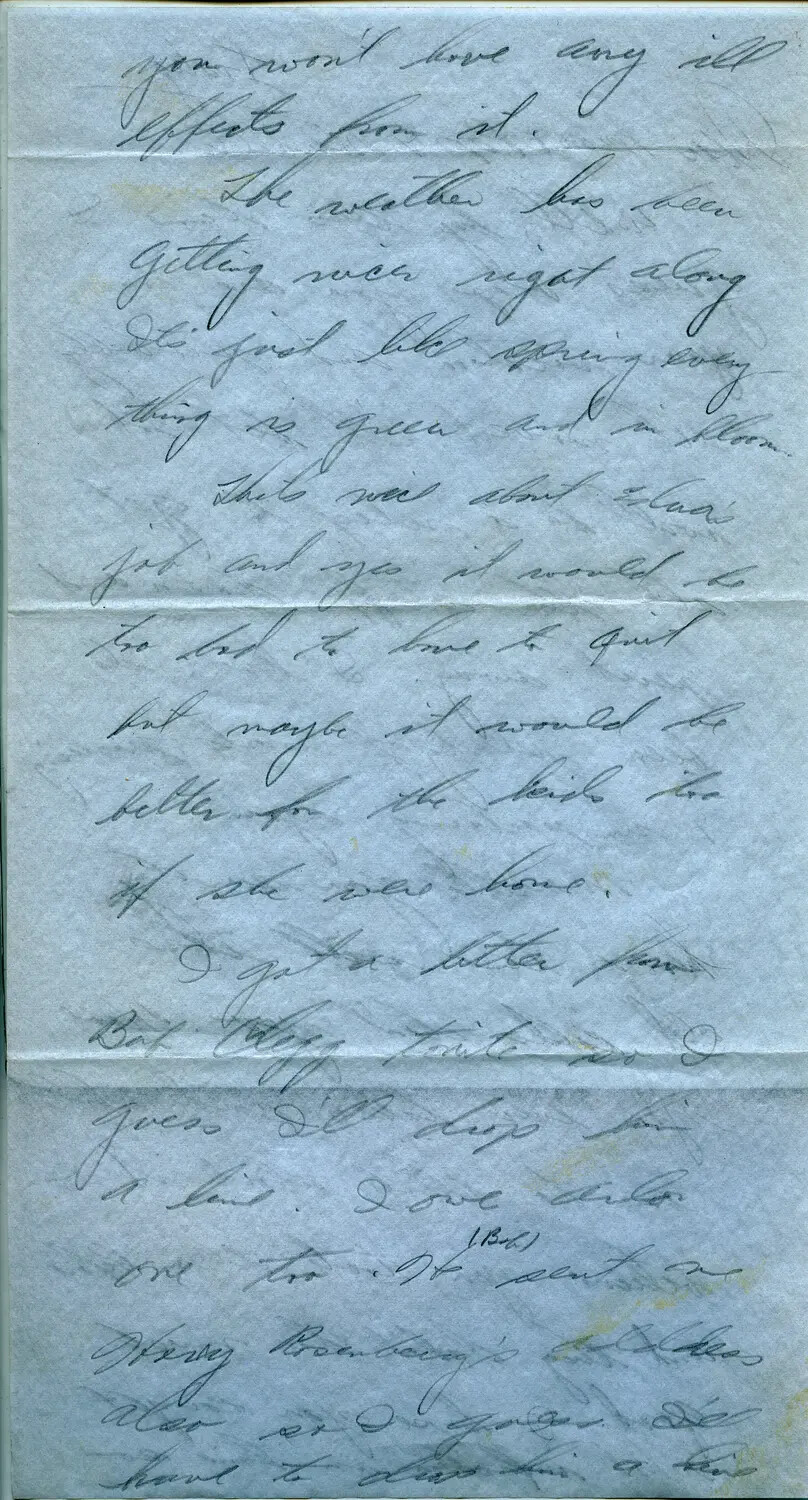 you won't have any ill
effects from it.
The weather has been
Getting nicer right along
It's just like spring every
thing is green and in bloom.
Thats nice about Edna's
job and yes it would be
too bad to have to quit
but maybe it would be
better for the kids too
if she were home.
I got a letter from
Bob Clegg tonite so I
guess I'll drop him
a line. I owe
one too. He (Bob) sent me
Rosenberg's address
also so I guess I'll
have to drop him a line